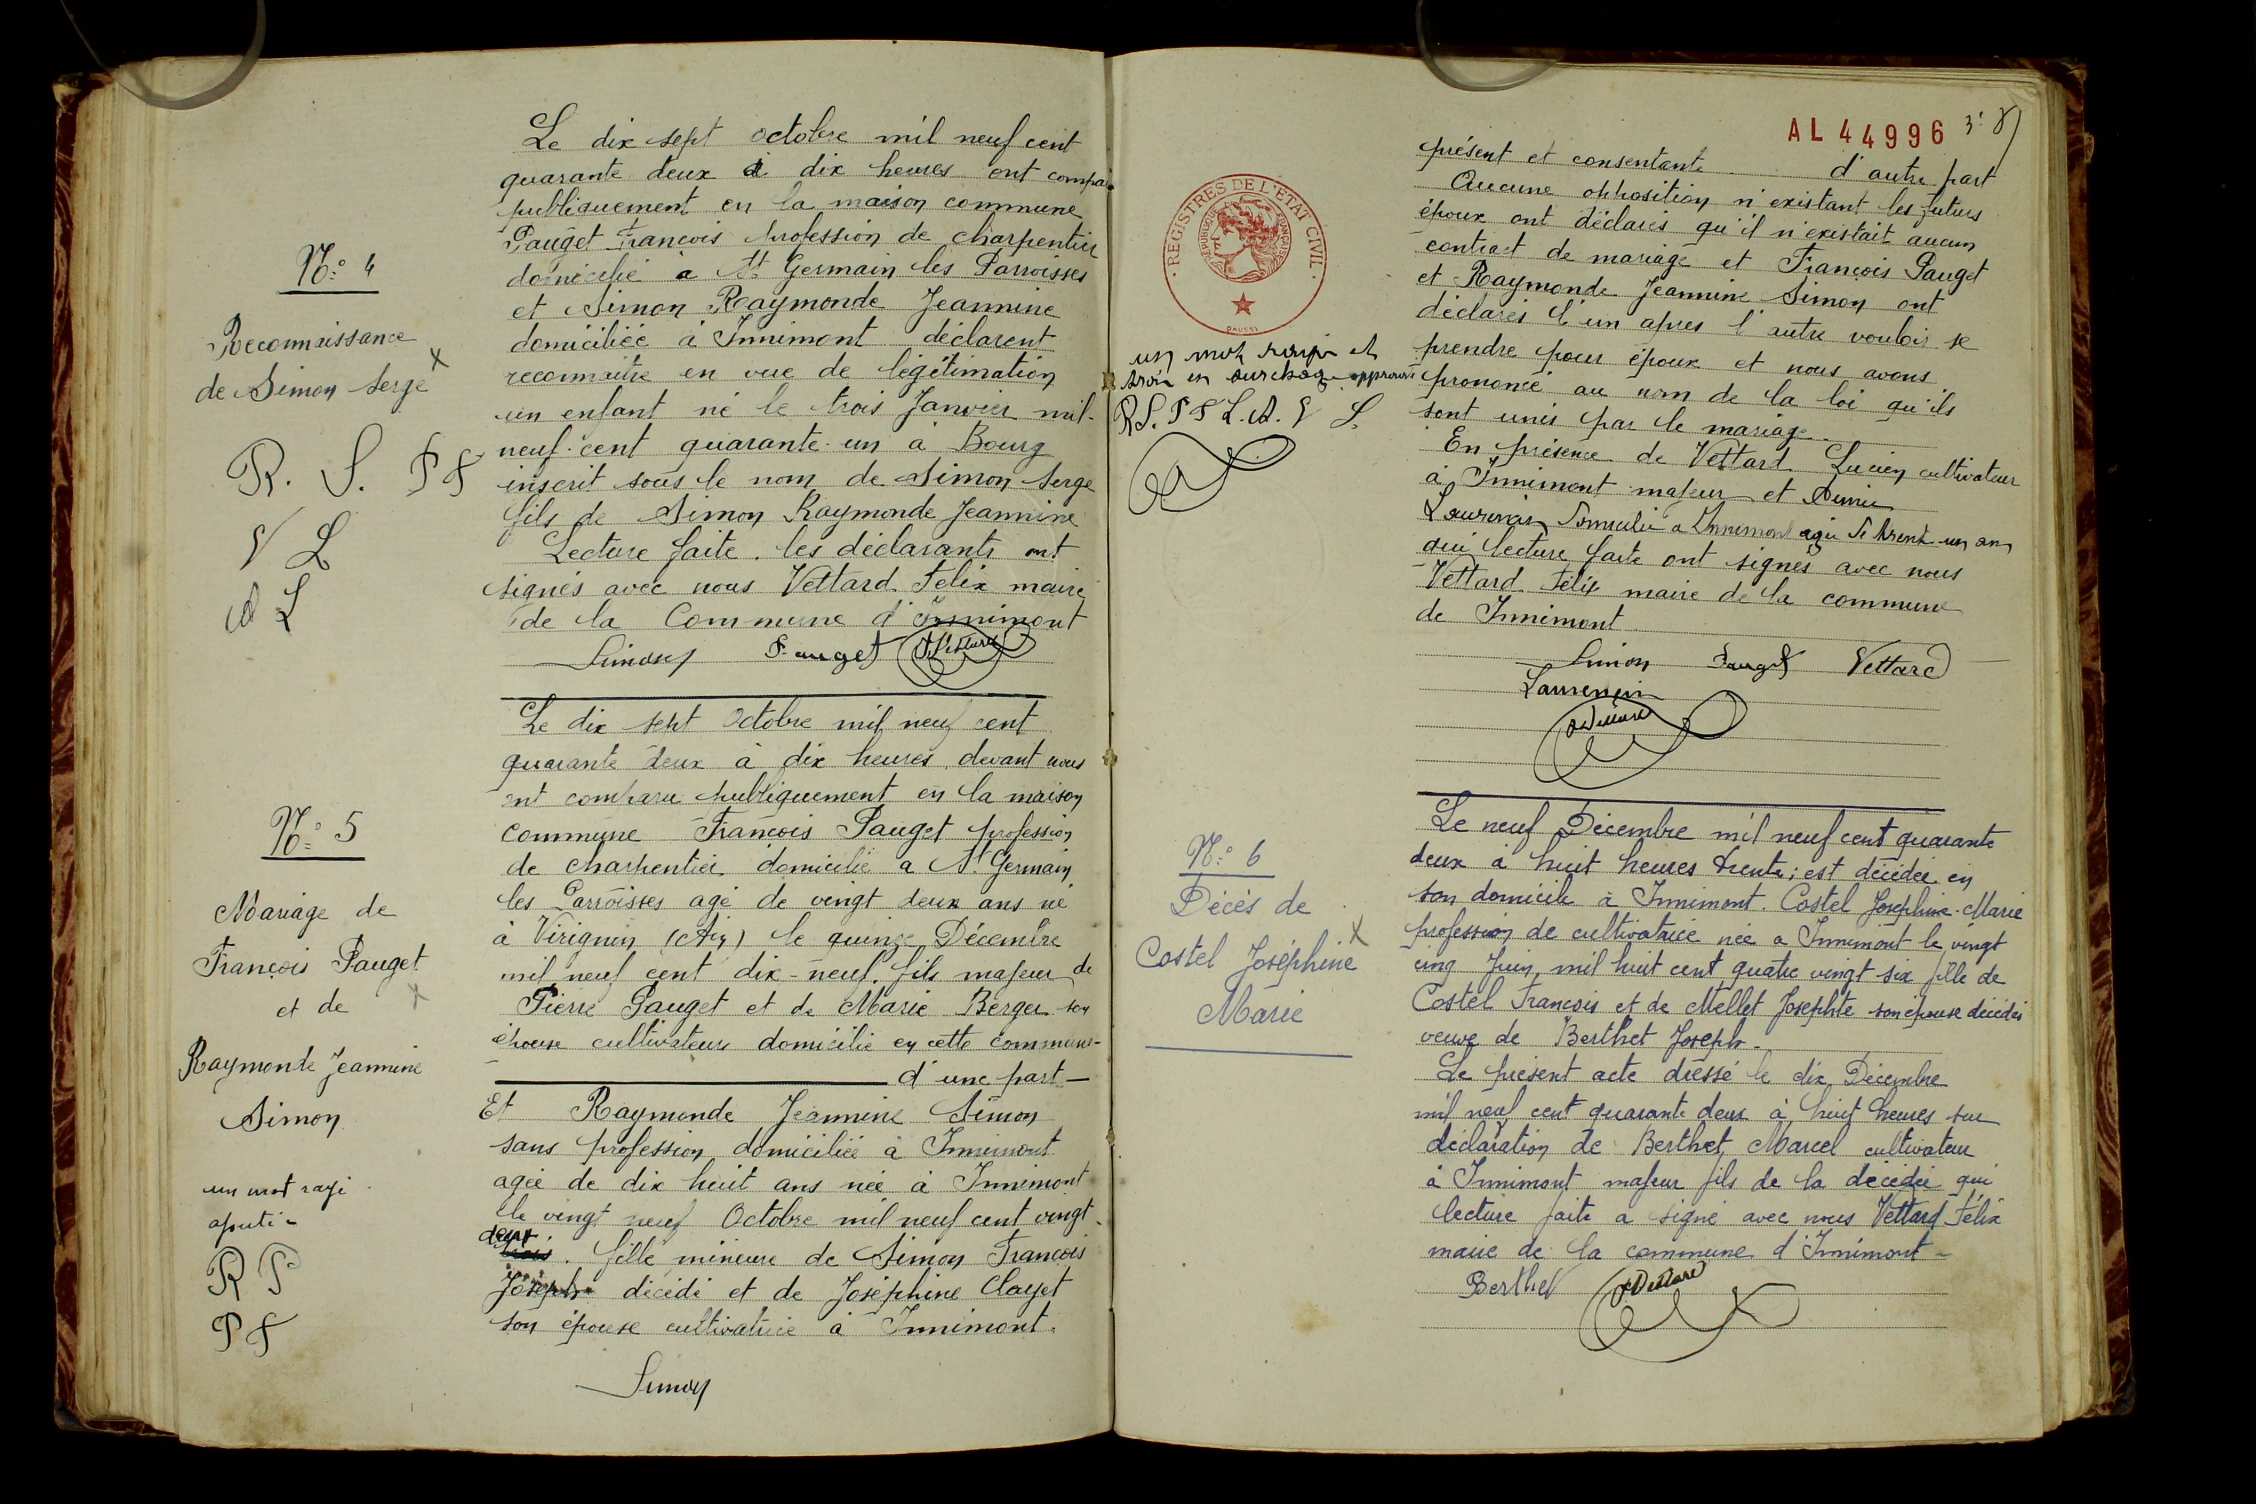 N° 4
Reconnaissance
de Simon Serge
R. S. P F
V L
A L
Le dix sept octobre mil neuf cent
quarante deux à dix heures ont compa
publiquement en la maison commune
Pauget François profession de charpentier
domicilié à St Germain les Parroisses
et Simon Raymonde Jeannine
domiciliée à Innimont déclarent
reconnaitre en vue de légitimation
un enfant né le trois Janvier mil-
neuf-cent quarante-un à Bourg
inscrit sous le nom de Simon Serge
fils de Simon Raymonde Jeannine
Lecture faite. les déclarants ont
signés avec nous Vettard Felix maire
de la Commune d'Innimont
Simon Pauget F. Vettard
N° 5
Mariage de
François Pauget
et de
Raymonde Jeannine
Simon
un mot rayé
R S
P F
Le dix sept Octobre mil neuf cent
quarante deux à dix heures devant nous
ont comparu publiquement en la maison
commune François Pauget profession
de charpentier domicilié a St Germain
les Parroisses agé de vingt deux ans né
à Virignin (Ain) le quinze Décembre
mil neuf cent dix-neuf. fils majeur de
Pierre Pauget et de Marie Berger son
épouse cultivateurs domicilié en cette commune-
d'une part-
Et Raymonde Jeannine Simon
sans profession domiciliée à Innimont
agée de dix huit ans née à Innimont
le vingt neuf Octobre mil neuf cent vingt-
deux
trois. fille mineure de Simon François
Joseph décédé et de Joséphine Clayet
son épouse cultivatrice à Innimont.
Simon
AL 44996
REGISTRES DE L'ETAT CIVIL
REPUBLIQUE FRANÇAISE
un mot rayé et
trois en surcharge approuvés
R S. P F L. A. V L.
présent et consentante d'autre part
Aucune opposition n'existant les futurs
époux ont déclarés qu'il n'existait aucun
contrat de mariage et François Pauget
et Raymonde Jeannine Simon ont
déclarés l'un apres l'autre vouloir se
prendre pour époux et nous avons
prononcé au nom de la loi qu'ils
sont unis par le mariage.
En présence de Vettard Lucien cultivateur
à Innimont majeur et Aimée
Laurencin domicilié a Innimont agée de trente un ans
qui lecture faite ont signés avec nous
Vettard Félix maire de la commune
de Innimont
Simon Pauget Vettard
Laurencin
F. Vettard
N° 6
Décès de
Costel Joséphine
Marie
Le neuf Décembre mil neuf cent quarante
deux à huit heures trente; est décédée en
son domicile à Innimont. Costel Joséphine-Marie
profession de cultivatrice née a Innimont le vingt
cinq Juin mil huit cent quatre vingt six fille de
Costel François et de Mellet Josephte son épouse décédés
veuve de Berthet Joseph-
Le présent acte dressé le dix Décembre
mil neuf cent quarante deux à huit heures sur
déclaration de Berthet Marcel cultivateur
à Innimont majeur fils de la décédée qui
lecture faite a signé avec nous Vettard Félix
maire de la commune d'Innimont-
Berthet F. Vettard